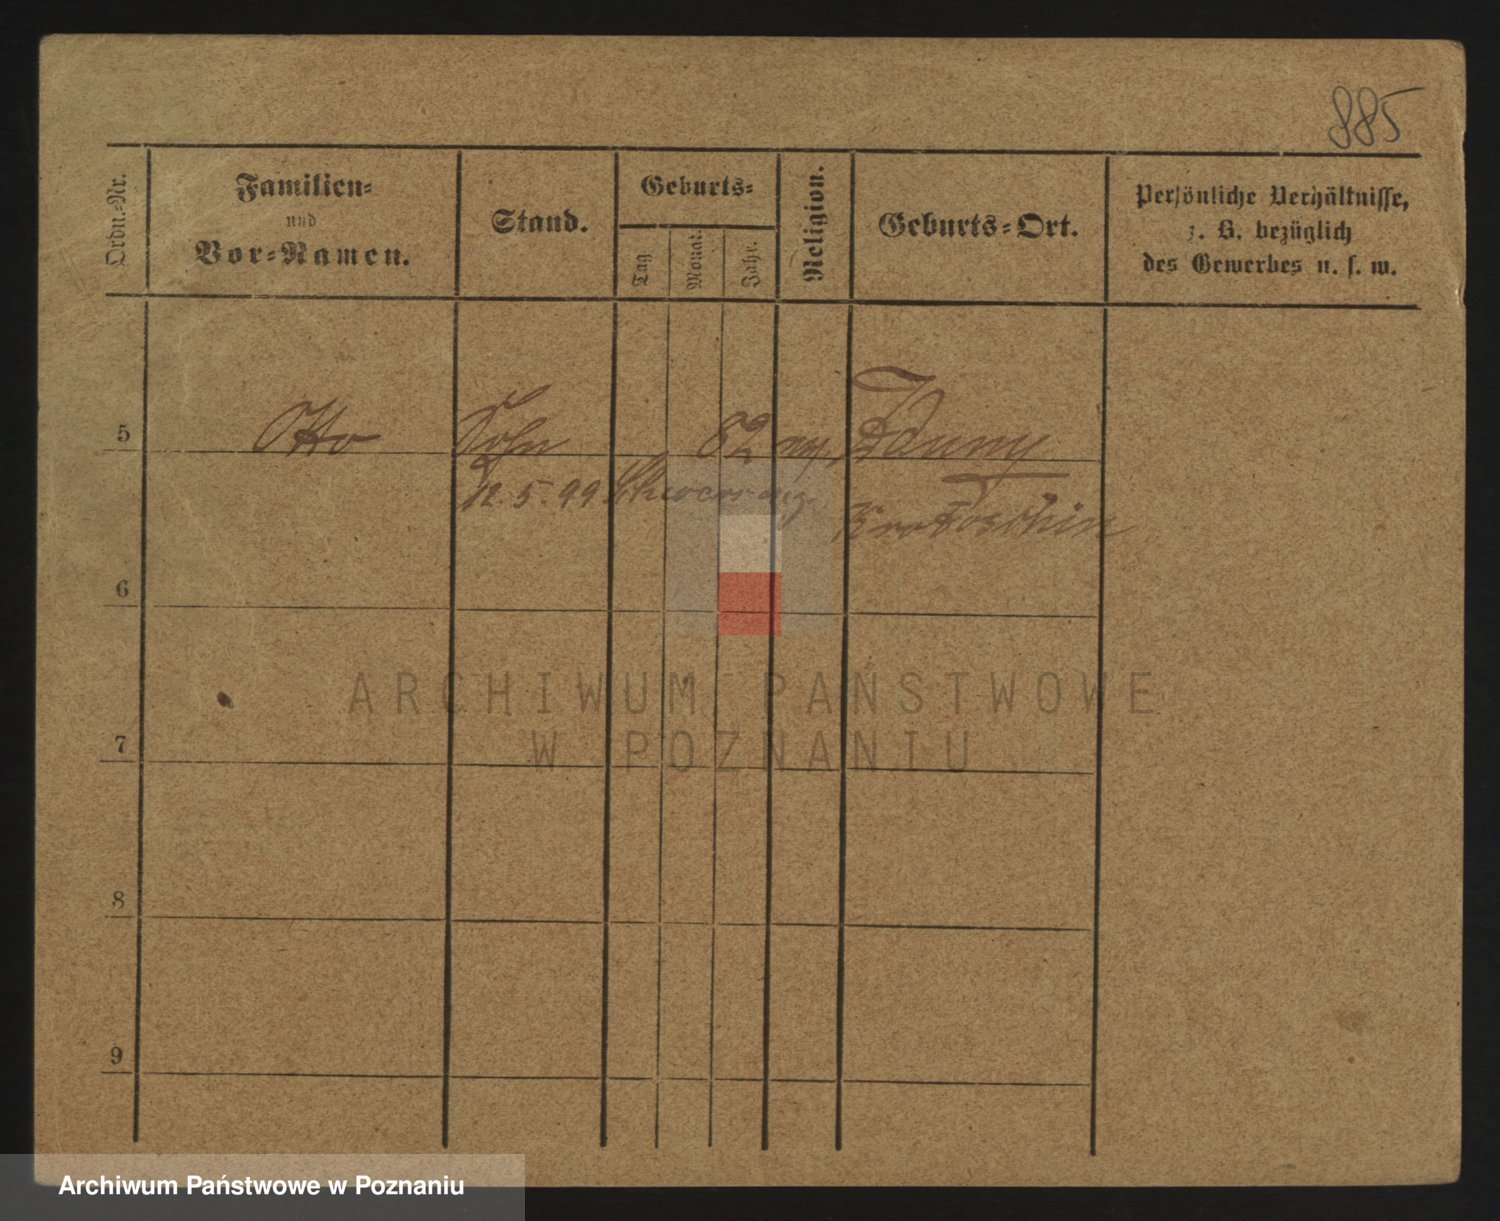 885
Ordn.-Nr.
Familien-
und
Vor-Namen.
Stand.
Geburts-
Tag
Monat.
Jahr.
Religion.
Geburts-Ort.
Persönliche Verhältnisse,
z. B. bezüglich
des Gewerbes u. s. w.
5 Otto Sohn 82 Zduny
12. 5. 99
Krotoschin
6
7
8
9
ARCHIWUM PAŃSTWOWE
W POZNANIU
Archiwum Państwowe w Poznaniu